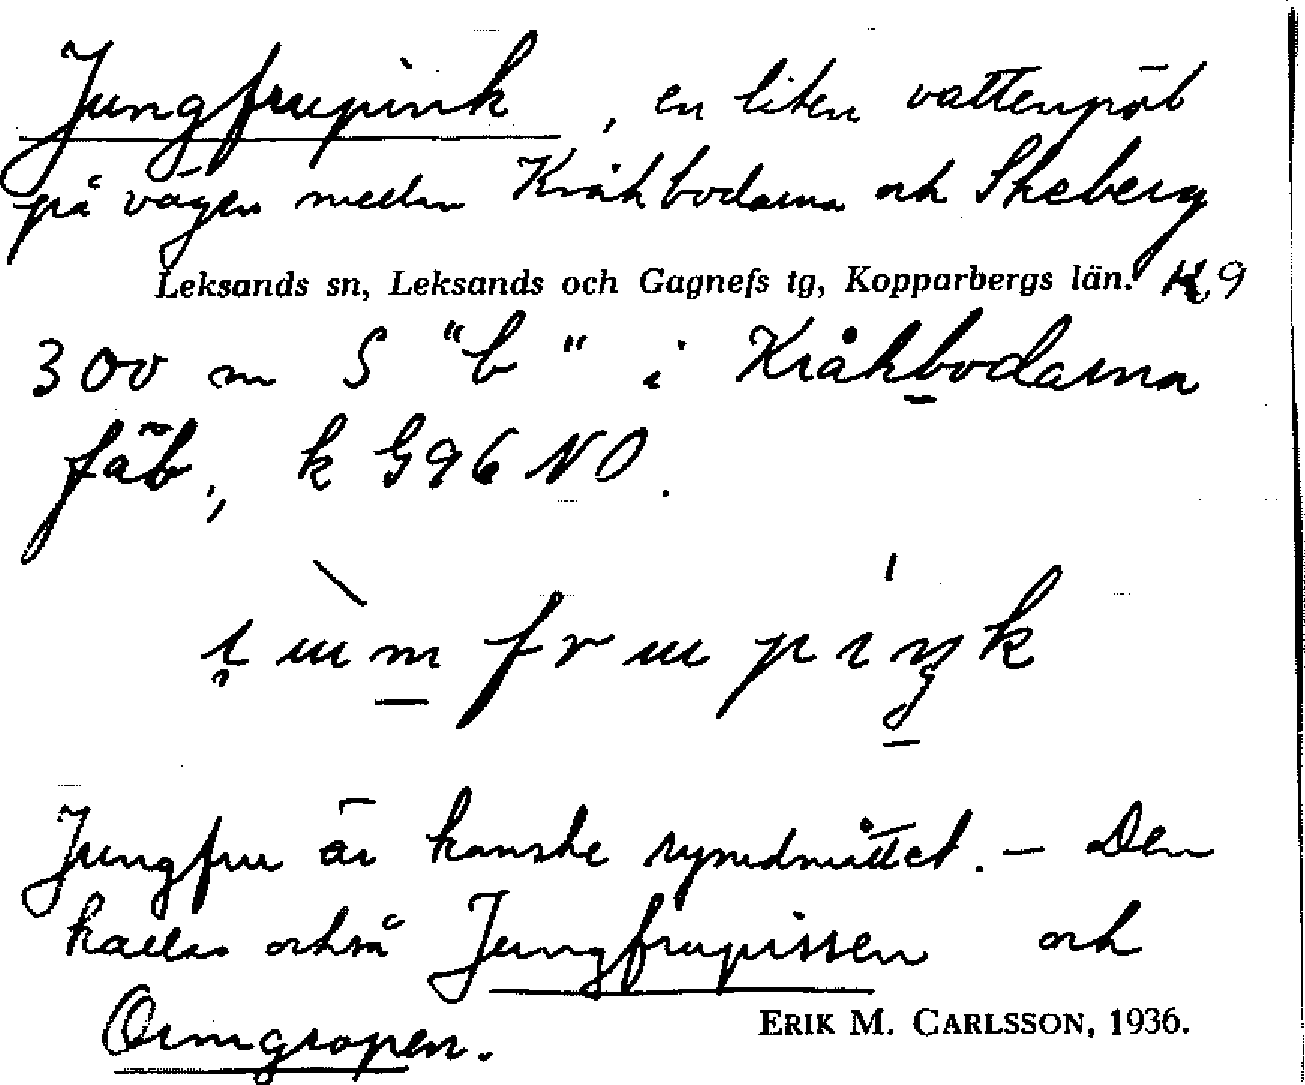 Jungfrupink, en liten vattenpöl
på vägen mellan Kråkbodarna och Skeberg
Leksands sn, Leksands och Gagnefs tg, Kopparbergs län. K, 9
300 m S "b" i Kråkbodarna
fäb., k G96 NO.
i̯ ùm̱ f r u p í ŋ̱ k
Jungfru är kanske rymdmåttet. — Den
kallas också Jungfrupissen och
Ormgropen.
ERIK M. CARLSSON, 1936.